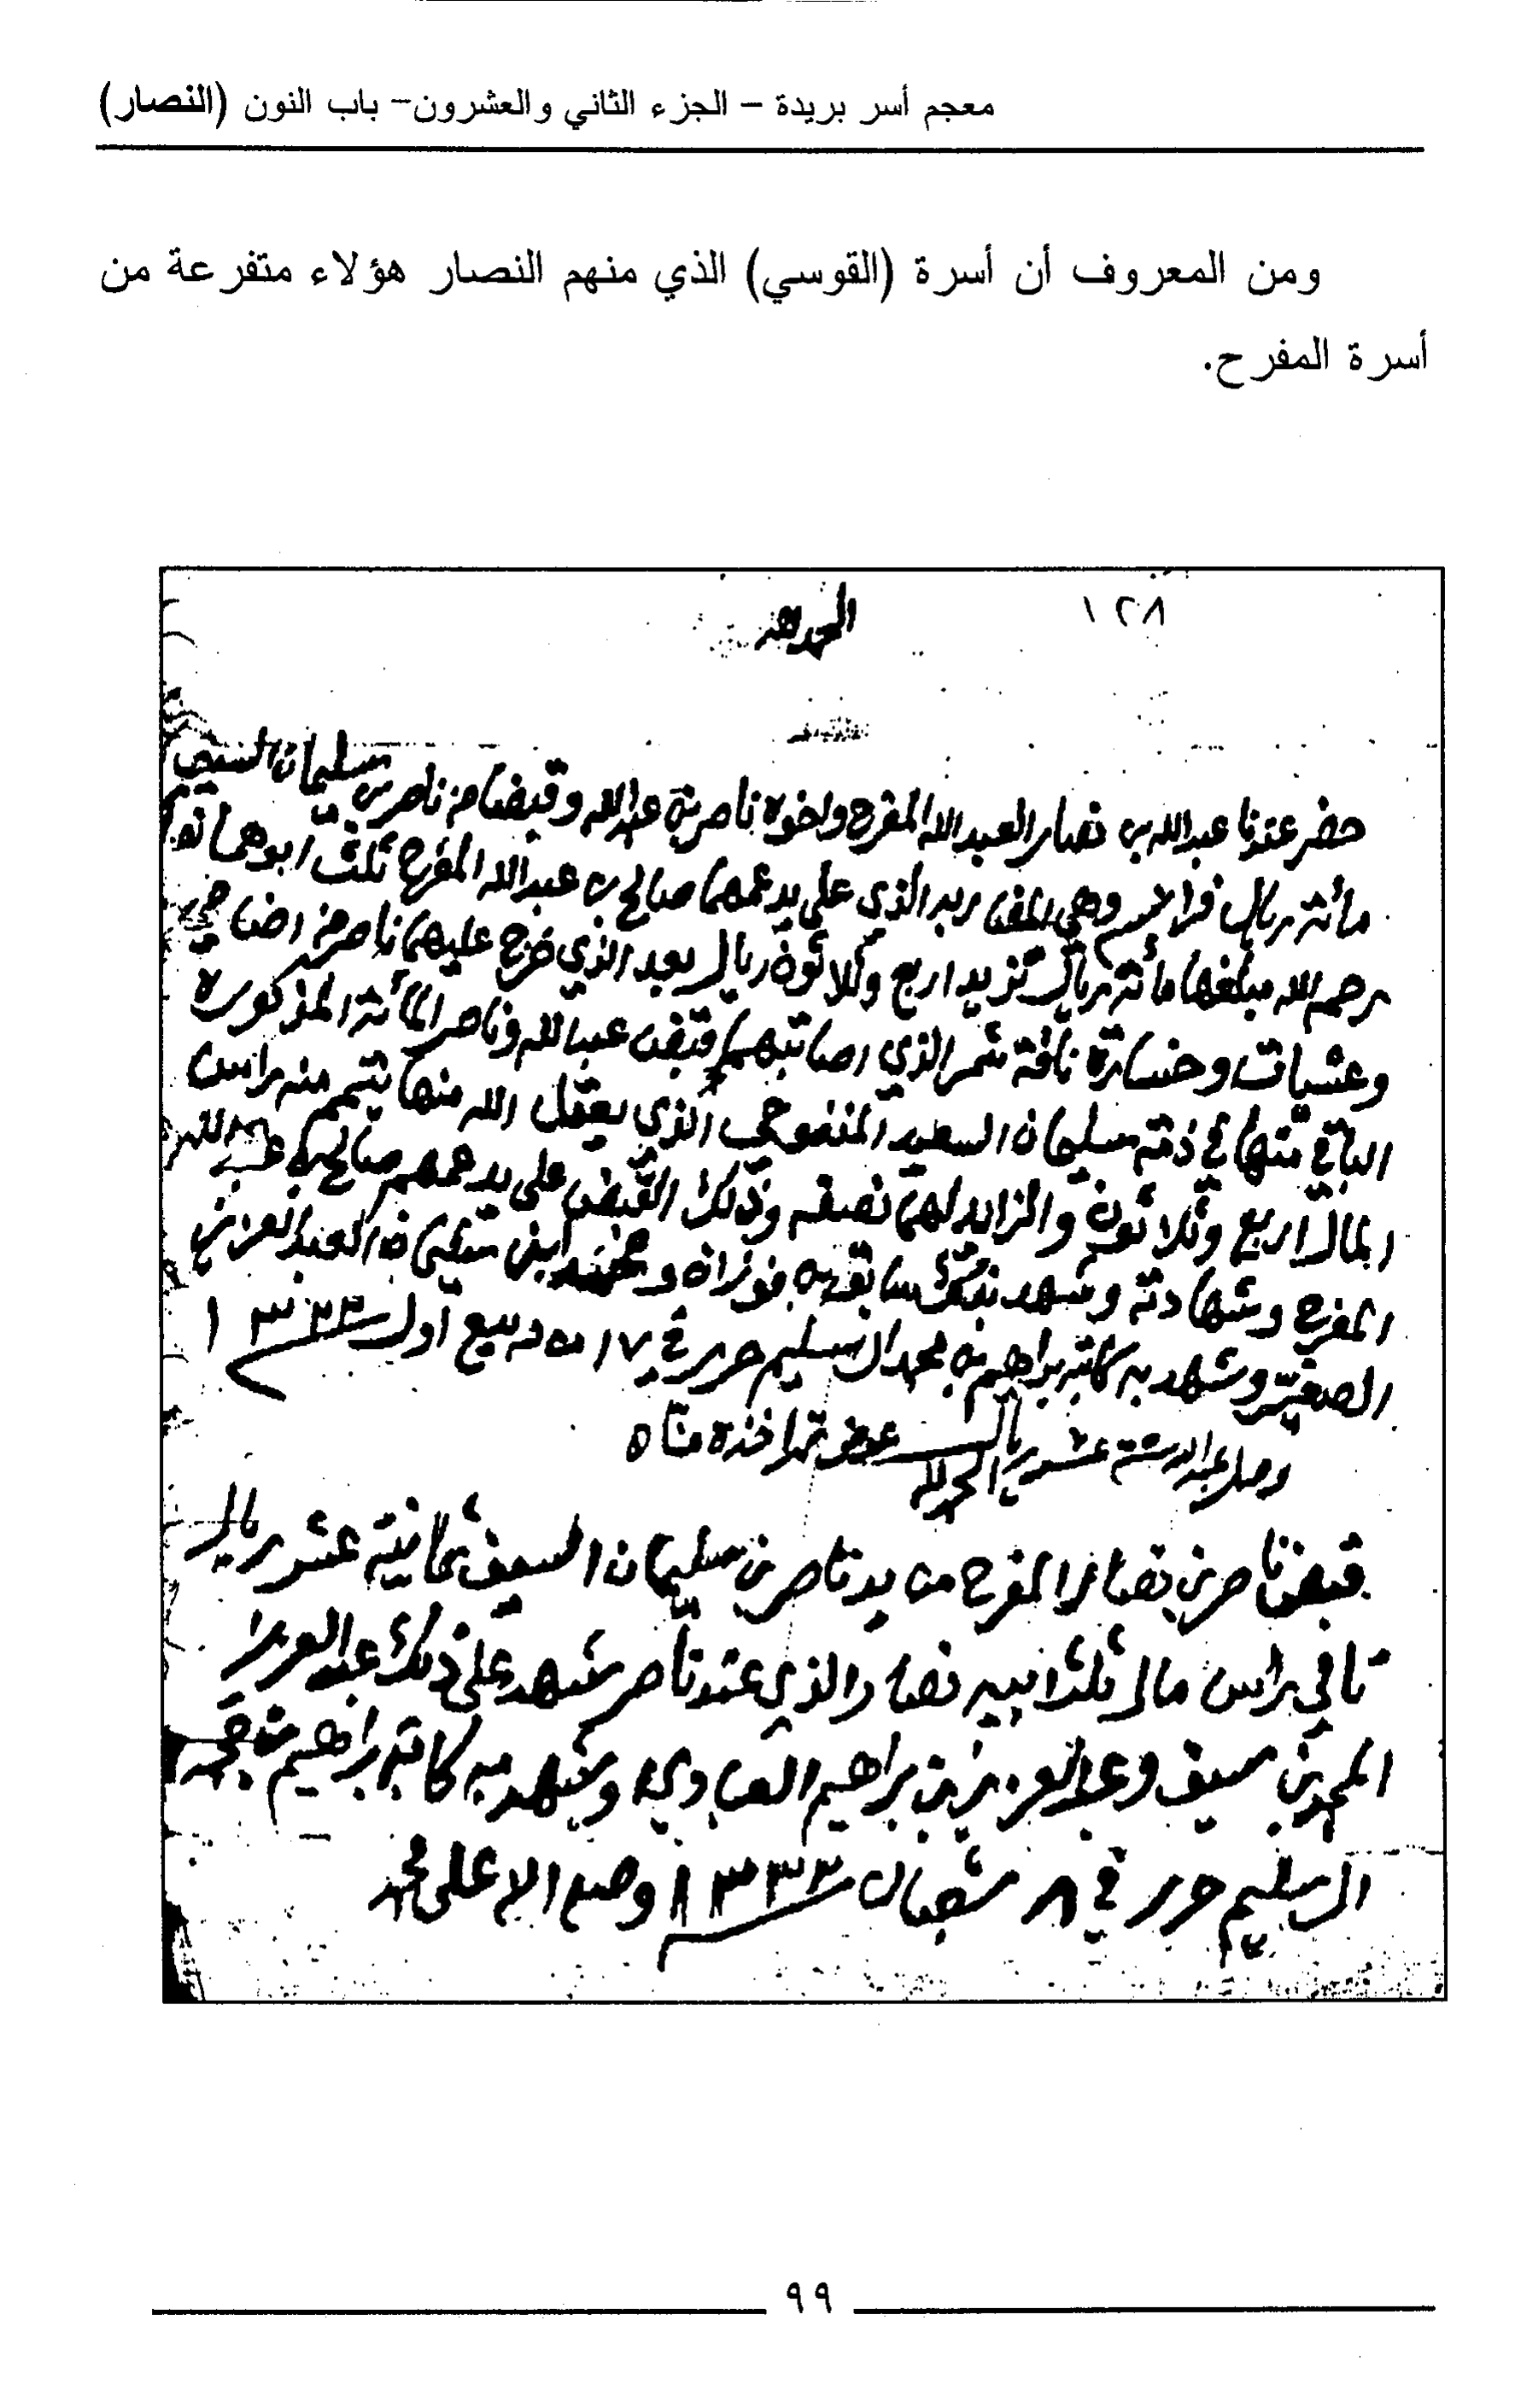 معجم أسر بريدة – الجزء الثاني والعشرون– باب النون (النصار)
ومن المعروف أن أسرة (القوسي) الذي منهم النصار هؤلاء متفرعة من
أسرة المفرح.
١٢٨
الحمد لله
حضر عندنا عبدالله بن نصار العبدالله المفرح واخوه ناصر بن عبدالله وقبضا من ناصر بن سليمان السيف
مائة ريال فرانسه وهي الذي على يد عمهما صالح بن عبدالله المفرح ثلث ابوهما نصار
رحمه الله مبلغها مائة ريال تزيد اربع وثلاثون ريال بعد الذي خرج عليهما ناصر من اضاحي
وعشيات وخسارة ناقة شمر الذي اصابتهما قبض عبدالله وناصر المائة المذكوره
الباقي منها في ذمة سليمان السعيد المنفوحي الذي يعقل الله منها يتمم منه راس
المال اربع وثلاثون والزايد لهما نصفه وذلك القبض على يد عمهم صالح بن عبدالله
المفرح وشهادته وشهد بذلك سابق بن فوزان وابن سليمان العبدالعزيز
الصغير وشهد به كاتبه ابراهيم بن محمد ال سليم حرر في ١٧ من ربيع اول سنة ١٣٣٣
وصل عبدالله ستة عشر ريال عوض تمر اخذه منا
الحمد لله
قبض ناصر بن نصار المفرح من يد ناصر بن سليمان السيف ثمانية عشر ريال
تافي راس مال ثلث ابيه نصار الذي عند ناصر شهد على ذلك عبدالعزيز
المحمد بن سيف وعبدالعزيز بن براهيم العبادي وشهد به كاتبه براهيم بن محمد
ال سليم حرر في ٨ شعبان سنة ١٣٣٣ وصلى الله على محمد
٩٩